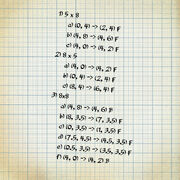 1) 5 x 8
a) (0, 4) -> (2, 4) F
b) (4, 8) -> (4, 6) F
c) (4, 0) -> (4, 2) F
2) 8 x 5
a) (4, 0) -> (4, 2) F
b) (0, 4) -> (2, 4) F
c) (8, 4) -> (6, 4) F
3) 8x8
a) (4, 8) -> (4, 6) F
b) (8, 3,5) -> (7, 3,5) F
c) (0, 3,5) -> (1, 3,5) F
d) (7,5, 4,5) -> (4,5, 3,5) F
e) (0,5, 3,5) -> (3,5, 3,5) F
f) (4, 0) -> (4, 2) F